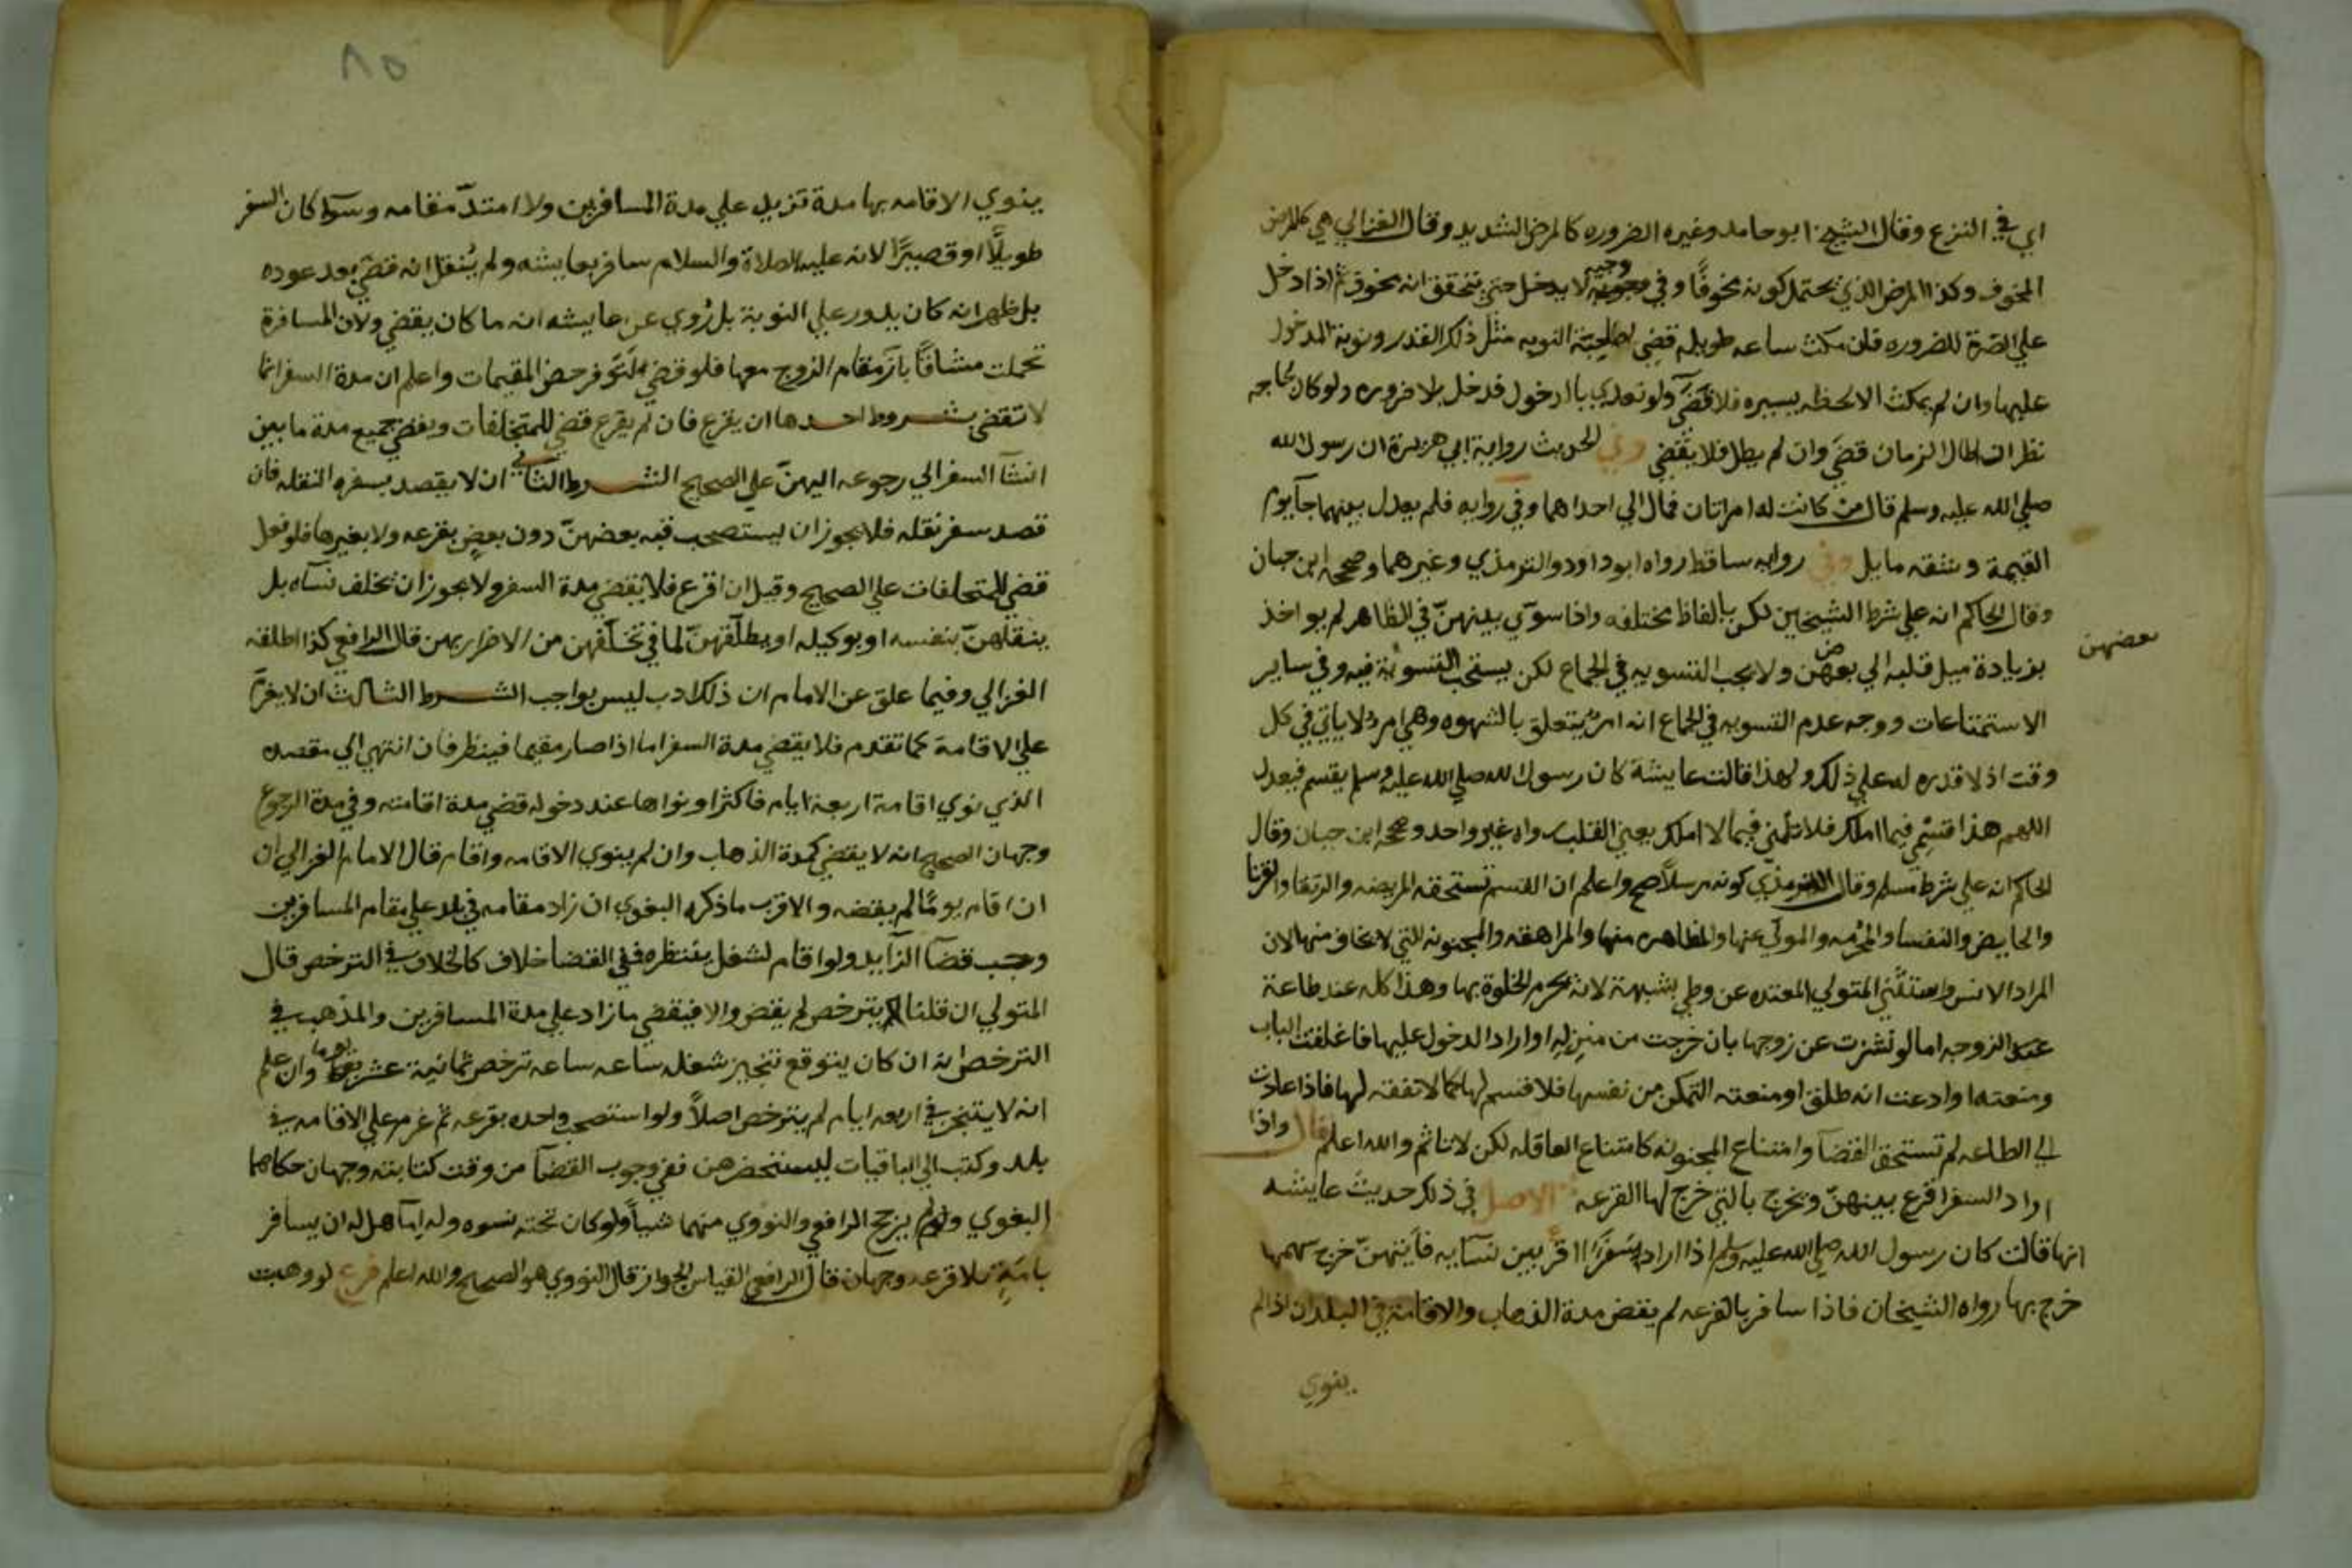 اي في النزع وقال الشيخ ابو حامد وغيره الضروره كالمرض الشديد وقال الغزالي هي كالمرض
المخوف وكذا المرض الذي يحتمل كونه مخوفًا وفي وجه لا يدخل حتى يتحقق انه مخوف ثم اذا دخل
علي الضرة للضروره فلن مكث ساعه طويله قضي لصاحبة النوبه مثل ذلك القدر ونوبة المدخول
عليها وان لم يمكث الا لحظه يسيره فلا قضآ ولو تعدي بالدخول فدخل بلا ضروره ولو كان لحاجه
نظر ان طال الزمان قضي وان لم يطل فلا يقضي وفي الحديث رواية ابي هريرة ان رسول الله
صلي الله عليه وسلم قال من كانت له امراتان فمال الي احداهما وفي روايه فلم يعدل بينهما جآ يوم
القيمة وشقه مايل وفي روايه ساقط رواه ابو داود والترمذي وغيرهما وصححه ابن حبان
وقال الحاكم انه علي شرط الشيخين لكن بالفاظ مختلفه واذا سوّي بينهنّ في الظاهر لم يواخذ
بزيادة ميل قلبه الي بعضهن ولا يجب التسويه في الجماع لكن يستحب التسوية فيه وفي ساير
بعضهن
الاستمتاعات ووجه عدم التسويه في الجماع انه امر يتعلق بالشهوه وهي امر لا ياتي في كل
وقت اذ لا قدره له علي ذلك ولهذا قالت عايشة كان رسول الله صلي الله عليه وسلم يقسم فيعدل
اللهم هذا قسمي فيما املك فلا تلمني فيما لا املك يعني القلب رواه غير واحد وصححه ابن حبان وقال
الحاكم انه علي شرط مسلم وقال الترمذي كونه مرسلاً اصح واعلم ان القسم تستحقه المريضه والرتقا والقرنا
والحايض والنفسا والمحرمه والمولي عنها والمظاهره منها والمراهقه والمجنونه التي لا يخاف منها لان
المراد الانس واستثني المتولي المعتده عن وطي بشبهة لانه يحرم الخلوة بها وهذا كله عند طاعة
الزوجه اما لو نشزت عن زوجها بان خرجت من منزله او اراد الدخول عليها فاغلقت الباب
ومنعته او ادعت انه طلق او منعته التمكن من نفسها فلا قسم لها كما لا نفقه لها فاذا عادت
الي الطاعه لم تستحق القضآ وامتناع المجنونه كامتناع العاقله لكن لا تاثم والله اعلم قال واذا
اراد السفر اقرع بينهنّ ويخرج بالتي خرج لها القرعه الاصل في ذلك حديث عايشه
انها قالت كان رسول الله صلي الله عليه وسلم اذا اراد سفرًا اقرع بين نسآيه فايتهنّ خرج سهمها
خرج بها رواه الشيخان فاذا سافر بالقرعه لم يقض مدة الذهاب والاقامة في البلدان اذا لم
ينوي
٨٥
ينوي الاقامه بها مدة تزيد علي مدة المسافرين ولا امتدّ مقامه وسوآ كان السفر
طويلًا او قصيرًا لانه عليه الصلاة والسلام سافر بعايشه ولم يُنقل انه قضي بعد عوده
بل ظهر انه كان يدور علي النوبة بل رُوي عن عايشه انه ما كان يقضي ولان المسافرة
تحملت مشاقًا بازآ مقام الزوج معها فلو قضي لتوفر حض المقيمات واعلم ان مدة السفر انما
لا تقضي بشروط احدها ان يقرع فان لم يقرع قضي للمتخلفات ويقضي جميع مدة ما بين
انشآ السفر الي رجوعه اليهنّ علي الصحيح الشرط الثاني ان لا يقصد بسفره النقله فان
قصد سفر نقله فلا يجوز ان يستصحب فيه بعضهنّ دون بعض بقرعه ولا بغيرها فلو فعل
قضي للمتخلفات علي الصحيح وقيل ان اقرع فلا يقضي مدة السفر ولا يجوز ان يخلف نسآه بل
ينقلهنّ بنفسه او بوكيله او يطلّقهنّ لما في تخلّفهن من الاضرار بهن قال الرافعي كذا اطلقه
الغزالي وفيما علق عن الامام ان ذلك ادب ليس بواجب الشرط الثالث ان لا يعزم
علي الاقامة كما تقدم فلا يقضي مدة السفر اما اذا صار مقيما فينظر فان انتهي الي مقصده
الذي نوي اقامة اربعة ايام فاكثر او نواها عند دخوله قضي مدة اقامته وفي مدة الرجوع
وجهان الصحيح انه لا يقضي كمدة الذهاب وان لم ينوي الاقامه واقام قال الامام الغزالي ان
ان اقام يومًا لم يقضه والاقرب ما ذكره البغوي ان زاد مقامه في بلد علي مقام المسافرين
وجب قضآ الزايد ولو اقام لشغل ينتظره ففي القضا خلاف كالخلاف في الترخص قال
المتولي ان قلنا يترخص لم يقض والا فيقضي ما زاد علي مدة المسافرين والمذهب في
الترخص انه ان كان يتوقع تنجيز شغله ساعه ساعه ترخص ثمانية عشر يوما وان علم
انه لا يتنجز في اربعه ايام لم يترخص اصلاً ولو استصحب واحده بقرعه ثم عزم علي الاقامه في
بلد وكتب الي الباقيات ليستحضرهن ففي وجوب القضآ من وقت كتابته وجهان حكاهما
البغوي ولم يرجح الرافعي والنووي منهما شيأ ولو كان تحته نسوه وله امآ هل له ان يسافر
بامَةٍ بلا قرعه وجهان قال الرافعي القياس الجواز قال النووي هو الصحيح والله اعلم فرع لو وهبت